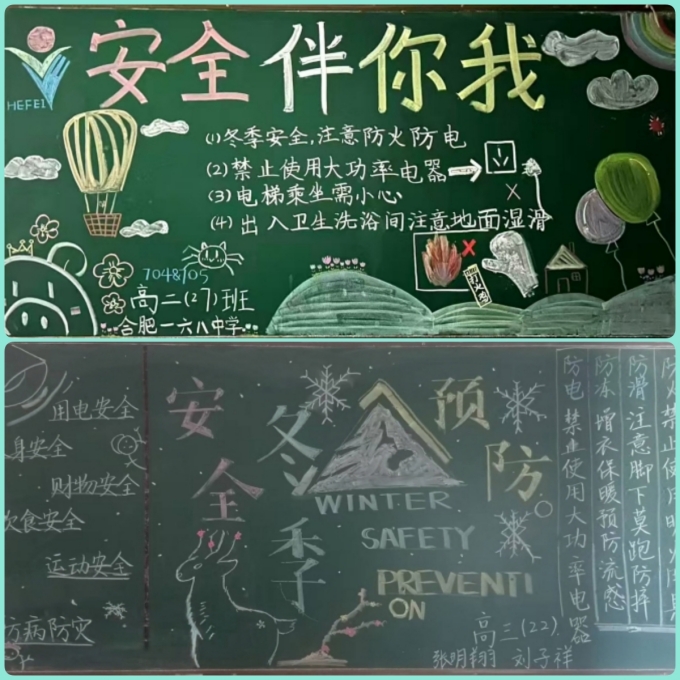 HEFEI
安全伴你我
(1)冬季安全,注意防火防电
(2)禁止使用大功率电器
(3)电梯乘坐需小心
(4)出入卫生洗浴间注意地面湿滑
704&705
高二(27)班
合肥一六八中学
用电安全
身安全
财物安全
饮食安全
运动安全
防病防灾
安全
冬季
预防
WINTER
SAFETY
PREVENTI
ON
高三(22)
张明翔 刘子祥
防滑 注意脚下莫跑防摔
防冻 增衣保暖预防流感
防电 禁止使用大功率电器